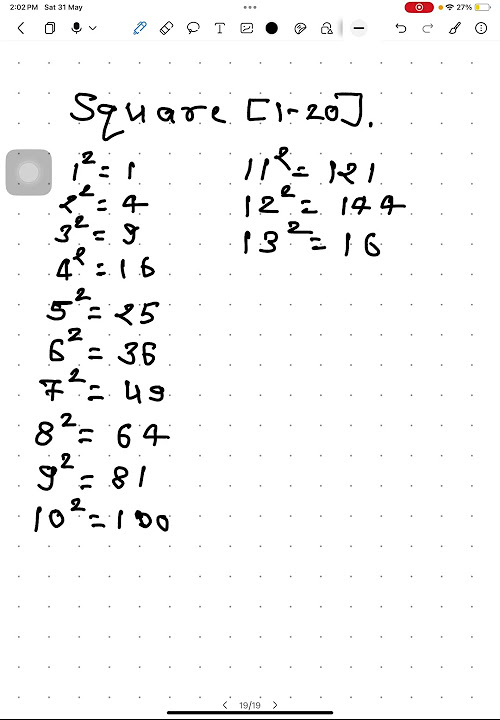 2:02 PM Sat 31 May
27%
Square [1-20].
1² = 1
2² = 4
3² = 9
4² = 16
5² = 25
6² = 36
7² = 49
8² = 64
9² = 81
10² = 100
11² = 121
12² = 144
13² = 16
19/19